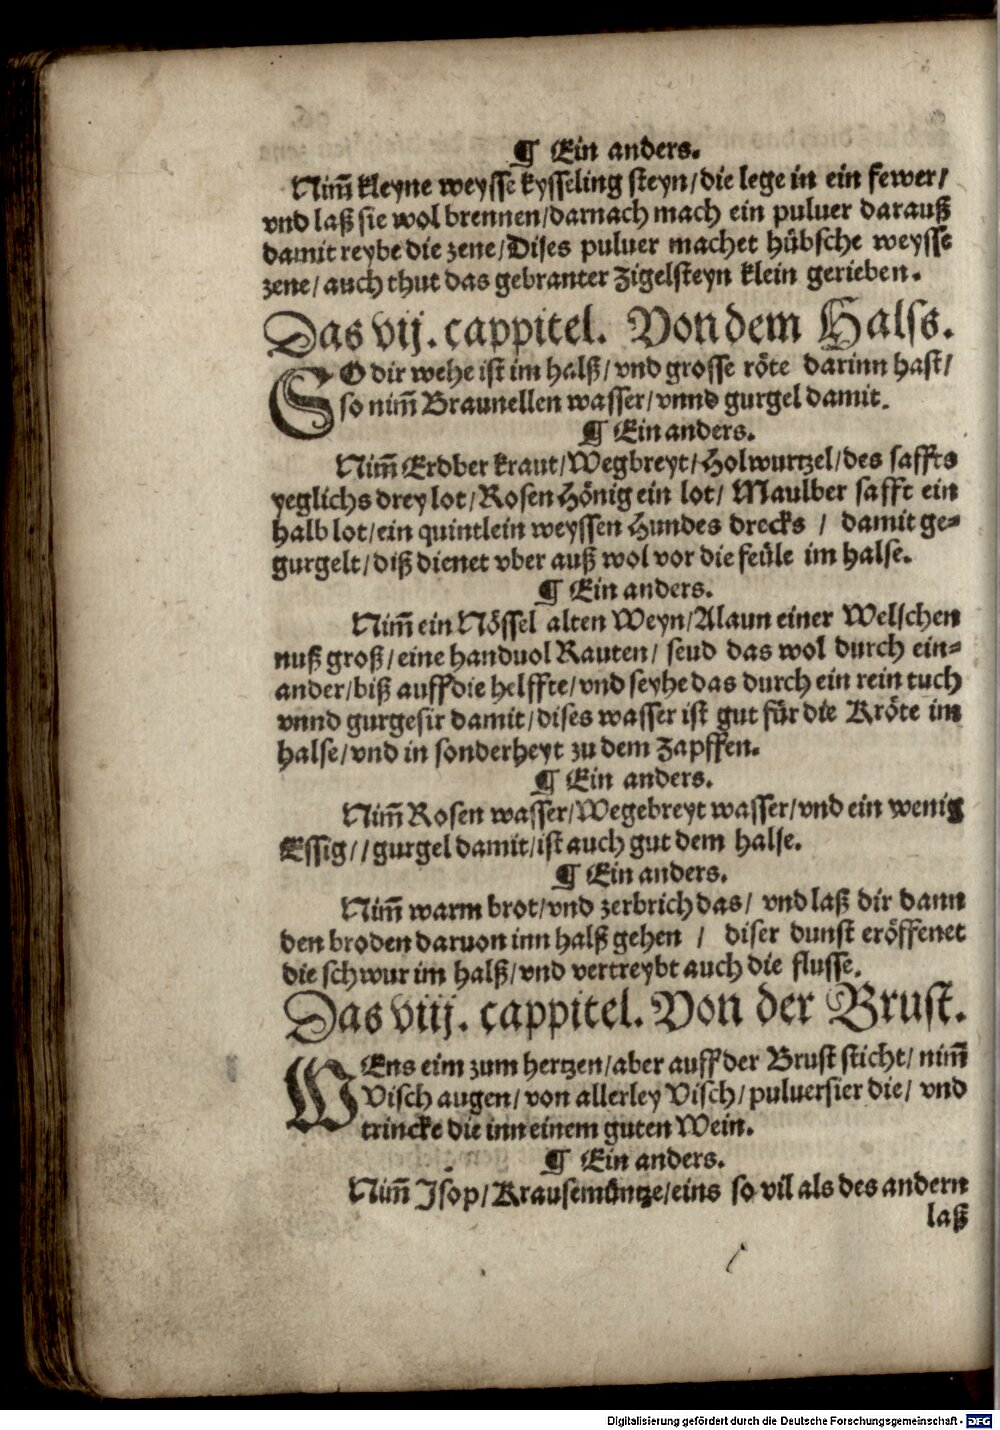 ¶ Ein anders.
Nim̃ kleyne weysse kysseling steyn/die lege in ein fewer/
vnd laß sie wol brennen/darnach mach ein puluer darauß
damit reybe die zene/Dises puluer machet hübsche weysse
zene/auch thut das gebranter Zigelsteyn klein gerieben.
Das vij. cappitel. Von dem Halss.
SO dir wehe ist im halß/vnd grosse röte darinn hast/
so nim̃ Braunellen wasser/vnnd gurgel damit.
¶ Ein anders.
Nim̃ Erdber kraut/Wegbreyt/Holwurtzel/des saffts
yeglichs drey lot/Rosen Hönig ein lot/ Maulber safft ein
halb lot/ein quintlein weyssen Hundes drecks / damit ge-
gurgelt/diß dienet vber auß wol vor die feüle im halse.
¶ Ein anders.
Nim̃ ein Nössel alten Weyn/Alaun einer Welschen
nuß groß/eine handuol Rauten/ seud das wol durch ein-
ander/biß auff die helffte/vnd seyhe das durch ein rein tuch
vnnd gurgesir damit/dises wasser ist gut für die Kröte im
halse/vnd in sonderheyt zu dem Zapffen.
¶ Ein anders.
Nim̃ Rosen wasser/Wegebreyt wasser/vnd ein wenig
Essig//gurgel damit/ist auch gut dem halse.
¶ Ein anders.
Nim̃ warm brot/vnd zerbrich das/ vnd laß dir dann
den broden daruon inn halß gehen / diser dunst eröffenet
die schwur im halß/vnd vertreybt auch die flusse.
Das viij. cappitel. Von der Brust.
WEns eim zum hertzen/aber auff der Brust sticht/nim̃
Visch augen/von allerley Visch/puluersier die/vnd
trincke die inn einem guten Wein.
¶ Ein anders.
Nim̃ Isop/Krausemüntze/eins so vil als des andern
laß
Digitalisierung gefördert durch die Deutsche Forschungsgemeinschaft - DFG